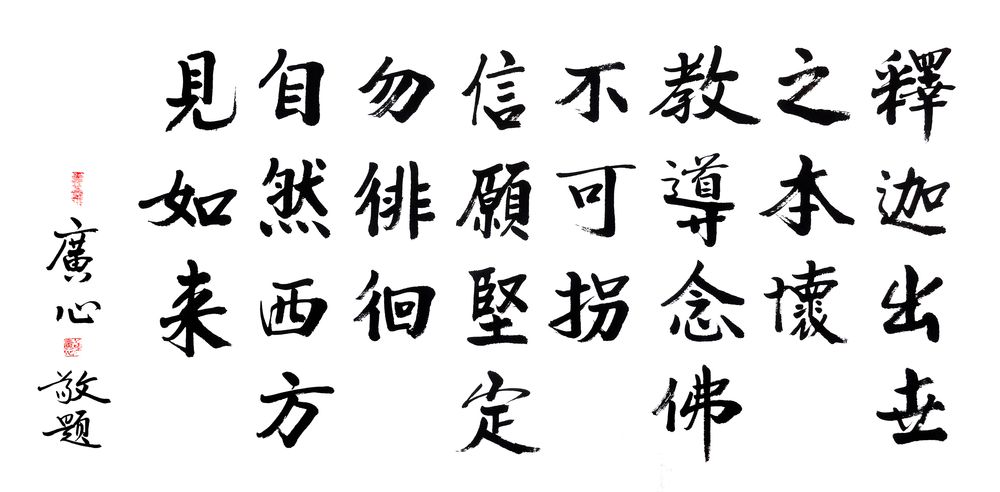 釋迦出世
之本懷
教導念佛
不可拐
信願堅定
勿徘徊
自然西方
見如来
廣心敬題